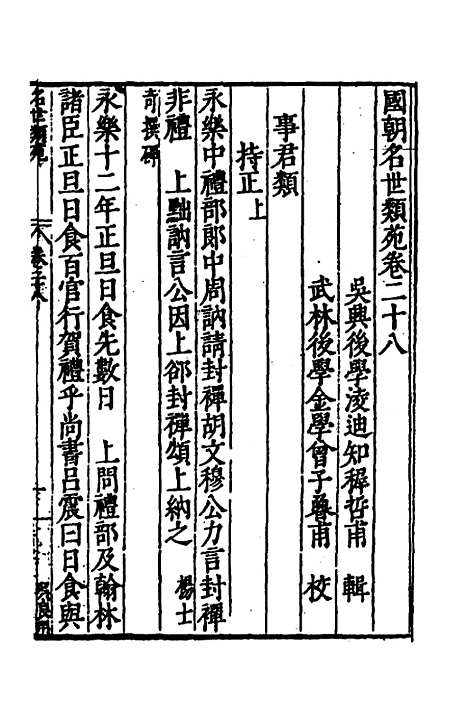 國朝名世類苑卷二十八
吳興後學凌迪知穉哲甫 輯
武林後學金學曾子魯甫 校
事君類
持正上
永樂中禮部郎中周訥請封禪胡文穆公力言封禪
非禮 上黜訥言公因上郤封禪頌上納之 楊士
奇撰碑
永樂十二年正旦日食先數日 上問禮部及翰林
諸臣正旦日食百官行賀禮乎尚書呂震曰日食與
名世類苑 卷二十八